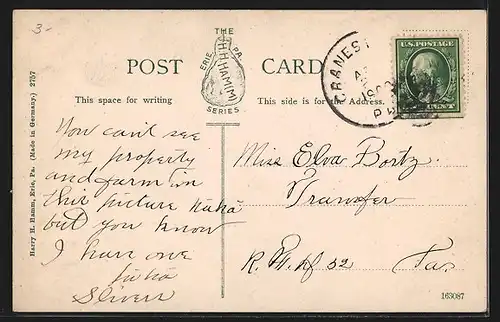 3-
THE
H.H.HAMM
ERIE PA.
SERIES
POST CARD
This space for writing
This side is for the Address.
Harry H. Hamm, Erie, Pa. (Made in Germany.) 2757
U.S. POSTAGE
CENT
You can't see
my property
and farm in
this picture haha
but you know
I have one
haha
Miss Elva Bortz
Transfer
R. F. D 52 Pa.
163087